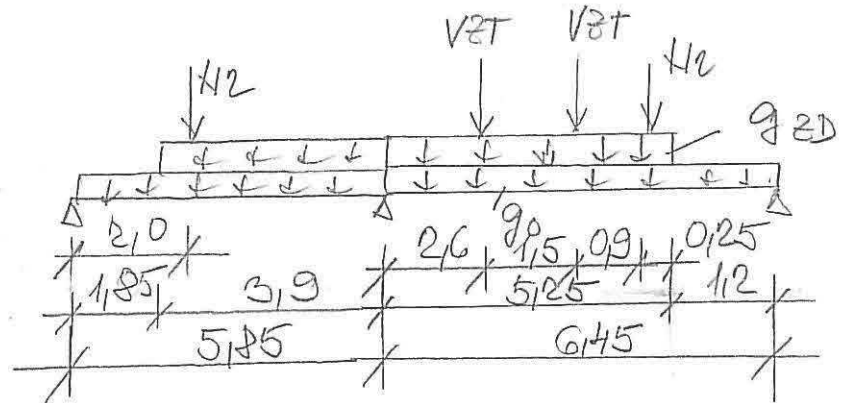 VZT VZT
H2 H2
g ZD
g0
2,0 2,6 1,5 0,9 0,25
1,85 3,9 5,25 1,2
5,85 6,45